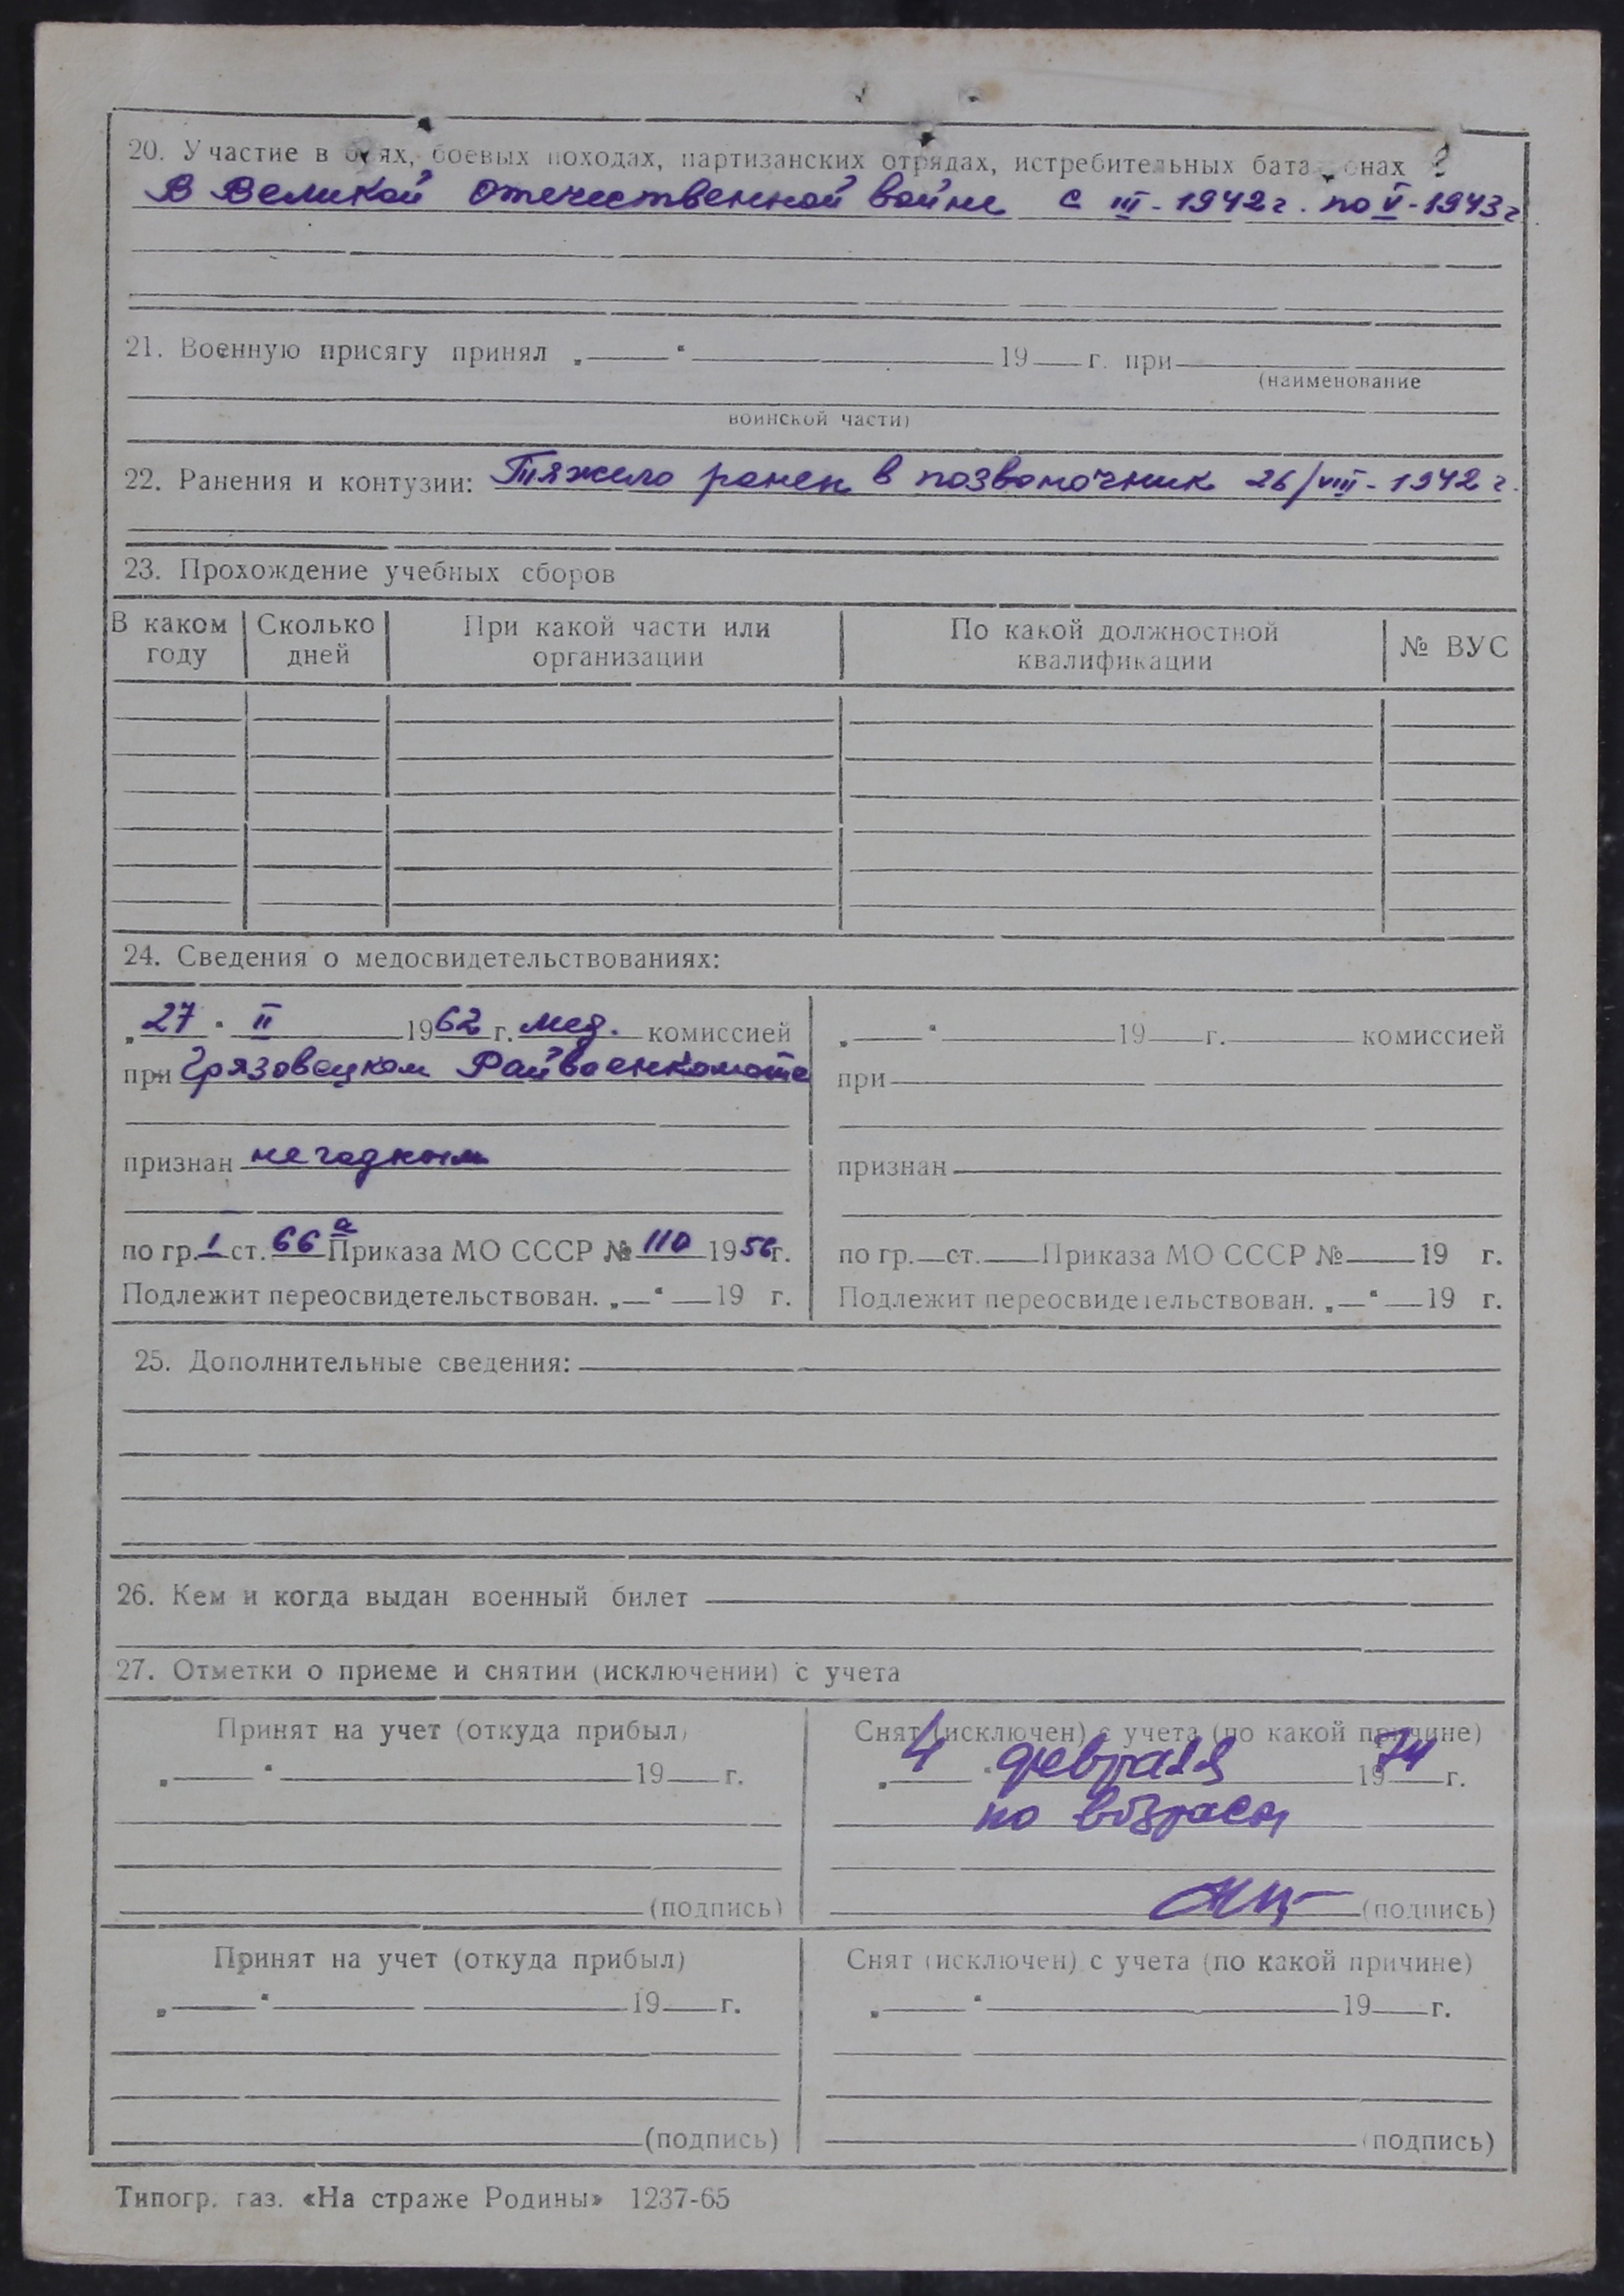 20. Участие в боях, боевых походах, партизанских отрядах, истребительных батальонах
В Великой Отечественной войне с III-1942 г. по V-1943 г
21. Военную присягу принял „ “ 19 г. при
(наименование
воинской части)
22. Ранения и контузии: Тяжело ранен в позвоночник 26/VIII-1942 г.
23. Прохождение учебных сборов
В каком году Сколько дней При какой части или организации По какой должностной квалификации № ВУС
24. Сведения о медосвидетельствованиях:
„27“ II 1962 г. мед. комиссией
при Грязовецком Райвоенкомате
признан негодным
по гр. I ст. 66а Приказа МО СССР № 110 1956г.
Подлежит переосвидетельствован. „ “ 19 г.
„ “ 19 г. комиссией
при
признан
по гр. ст. Приказа МО СССР № 19 г.
Подлежит переосвидетельствован. „ “ 19 г.
25. Дополнительные сведения:
26. Кем и когда выдан военный билет
27. Отметки о приеме и снятии (исключении) с учета
Принят на учет (откуда прибыл)
„ “ 19 г.
(подпись)
Снят (исключен) с учета (по какой причине)
„4“ февраля 1974 г.
по возраст
(подпись)
Принят на учет (откуда прибыл)
„ “ 19 г.
(подпись)
Снят (исключен) с учета (по какой причине)
„ “ 19 г.
(подпись)
Типогр. газ. «На страже Родины» 1237-65